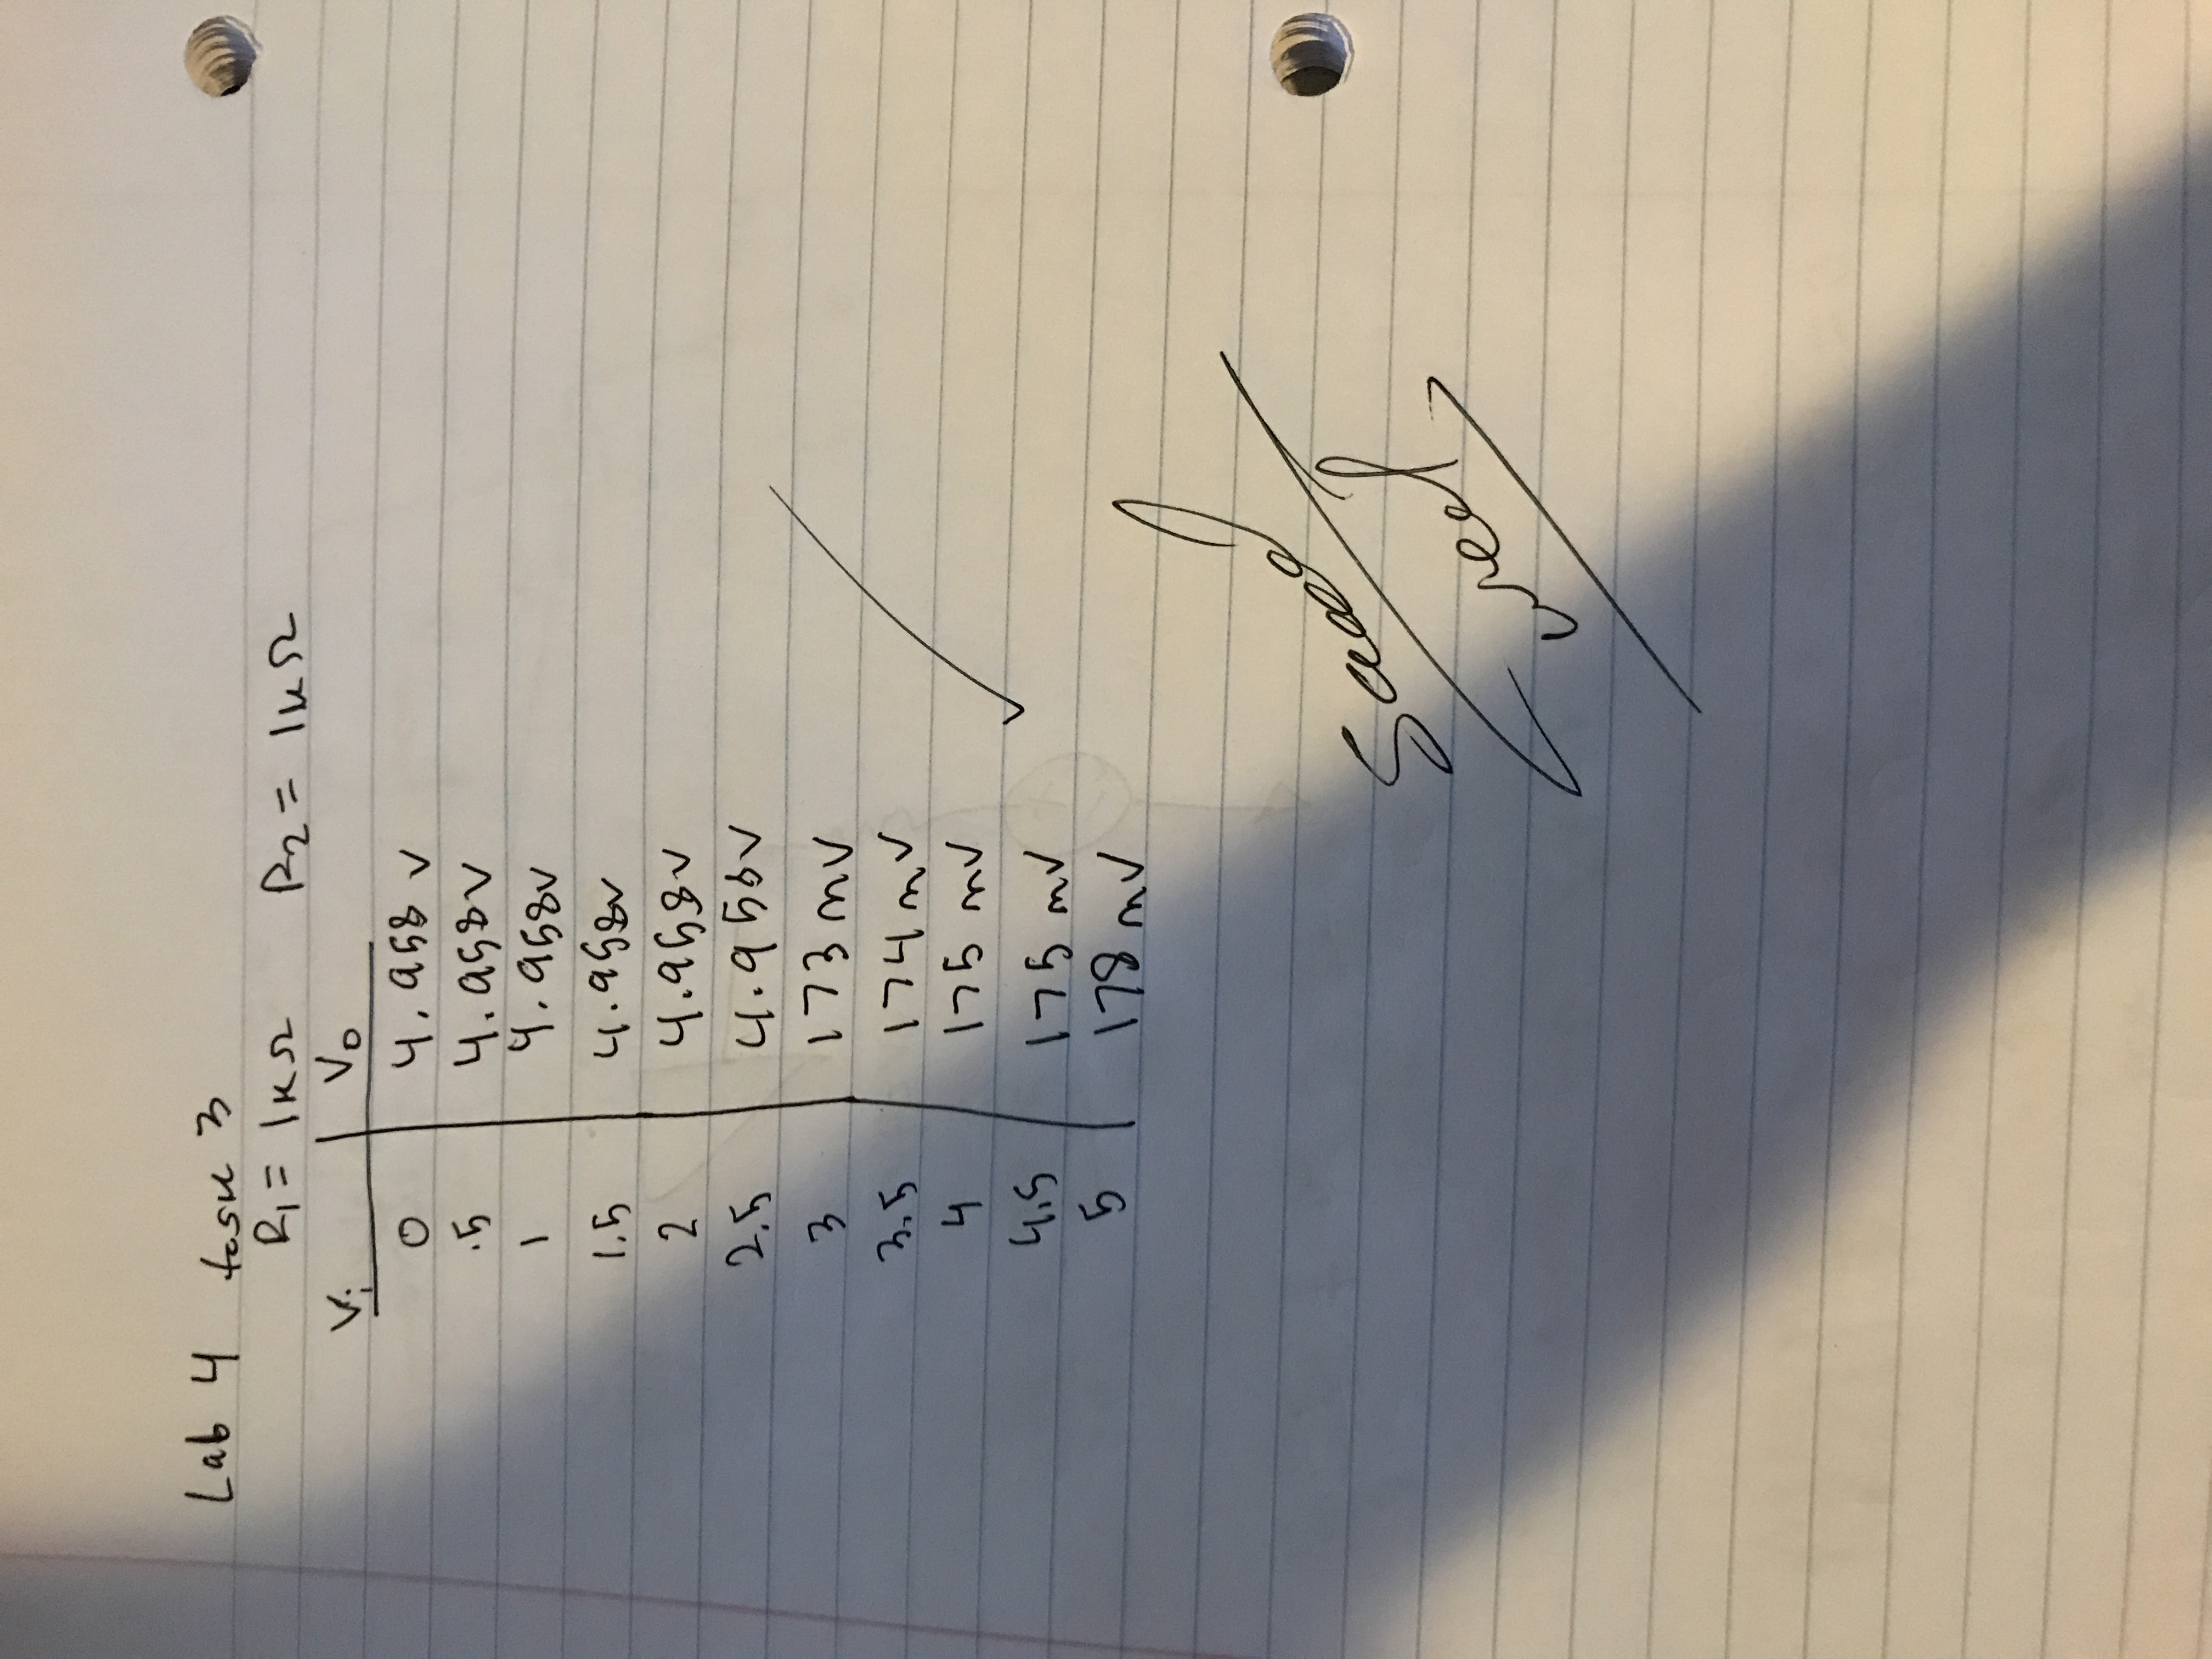 Lab 4 task 3
R₁ = 1kΩ R₂ = 1kΩ
Vi Vo
0 4.958 V
.5 4.958V
1 4.958V
1.5 4.958V
2 4.958V
2.5 4.958V
3 173 mV
3.5 174 mV
4 175 mV
4.5 175 mV
5 178 mV